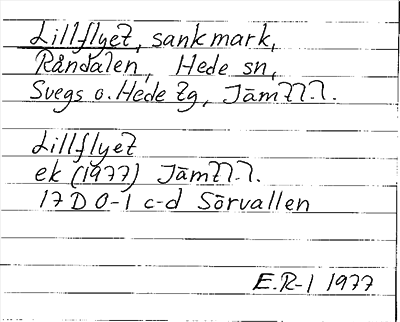 Lillflyet, sankmark,
Råndalen, Hede sn,
Svegs o. Hede tg, Jämtl.l.
Lillflyet
ek (1977) Jämtl.l.
17 D 0-1 c-d Sörvallen
E.R-l 1977